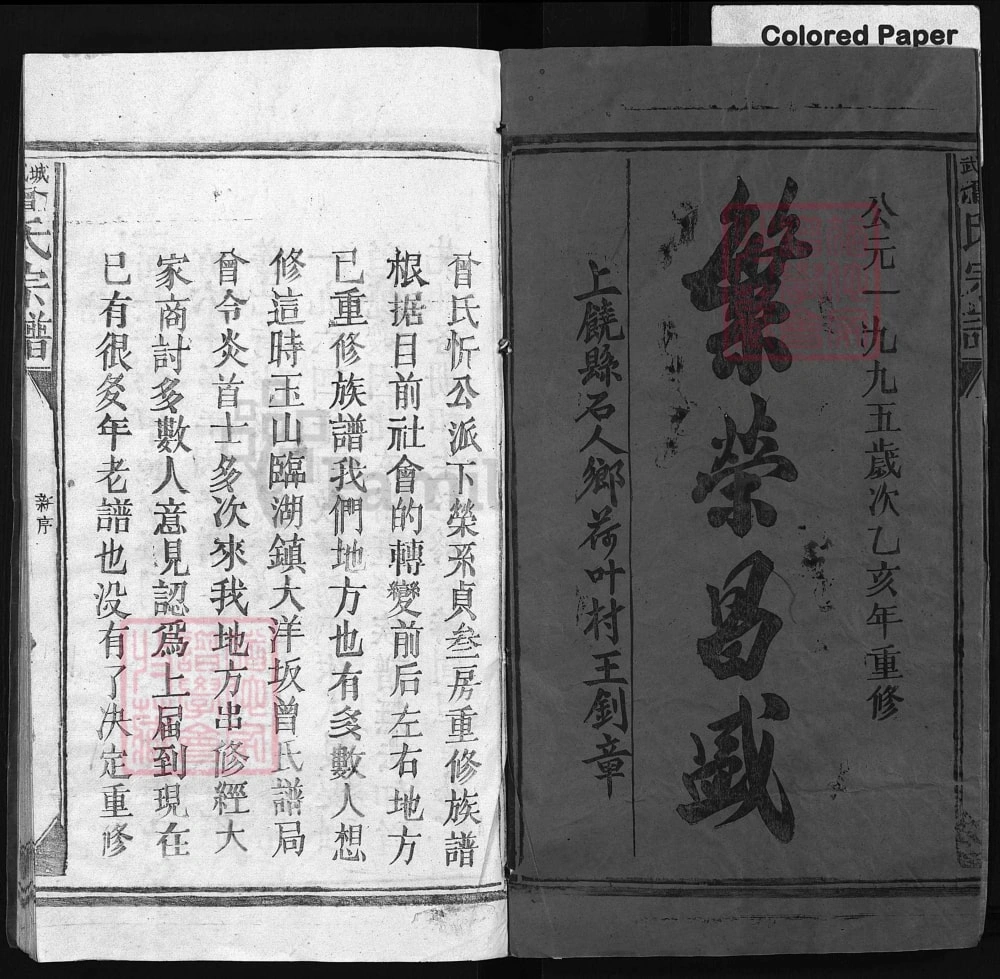 Colored Paper
武城曾氏宗譜
公元一九九五歲次乙亥年重修
繁榮昌盛
上饒縣石人鄉荷叶村王釗章
曾氏忻公派下榮系貞叁房重修族譜
根据目前社會的轉變前后左右地方
已重修族譜我們地方也有多數人想
修這時玉山臨湖鎮大洋坂曾氏譜局
曾令炎首士多次來我地方出修經大
家商討多數人意見認爲上届到現在
已有很多年老譜也没有了决定重修
城曾氏宗譜
新序